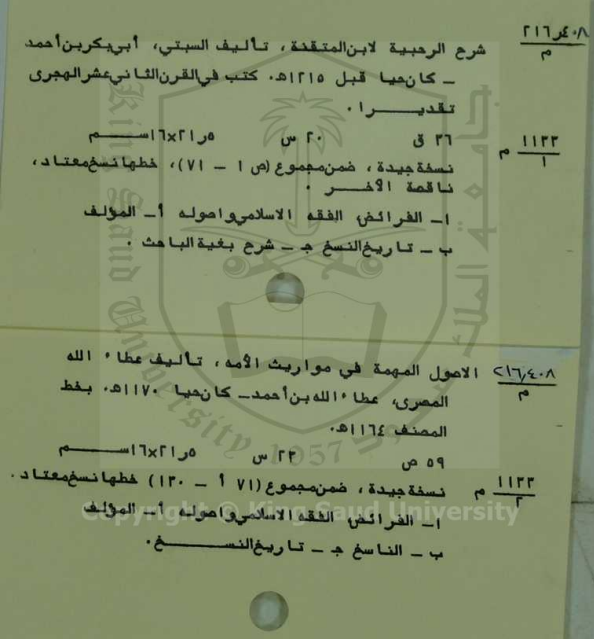 ٢١٦٫٤٠٨
م
شرح الرحبية لابن المتقنة، تأليف السبتي، أبي بكر بن أحمد
ـ كان حيا قبل ١٢١٥هـ. كتب في القرن الثاني عشر الهجرى
تقديـــرا.
٣٦ ق ٢٠ س ٢١٫٥×١٦ســم
١١٣٣ م
١
نسخة جيدة، ضمن مجموع (ص ١ ـ ٧١)، خطها نسخ معتاد،
ناقصة الآخـــر.
١ـ الفرائض، الفقه الاسلامي واصوله أ ـ المؤلف
ب ـ تاريخ النسخ جـ ـ شرح بغية الباحث.
٢١٦٫٤٠٨
م
الاصول المهمة في مواريث الأمه، تأليف عطاء الله
المصرى، عطاء الله بن أحمد ـ كان حيا ١١٧٠هـ. بخط
المصنف ١١٦٤هـ.
٥٩ ص ٢٣ س ٢١٫٥×١٦ســم
١١٣٣ م
٢
نسخة جيدة، ضمن مجموع (٧١ أ ـ ١٣٠) خطها نسخ معتاد.
١ـ الفرائض، الفقه الاسلامي واصوله أ ـ المؤلف
ب ـ الناسخ جـ ـ تاريخ النســـخ.
جامعة الملك سعود
King Saud University
1957
Copyright © King Saud University